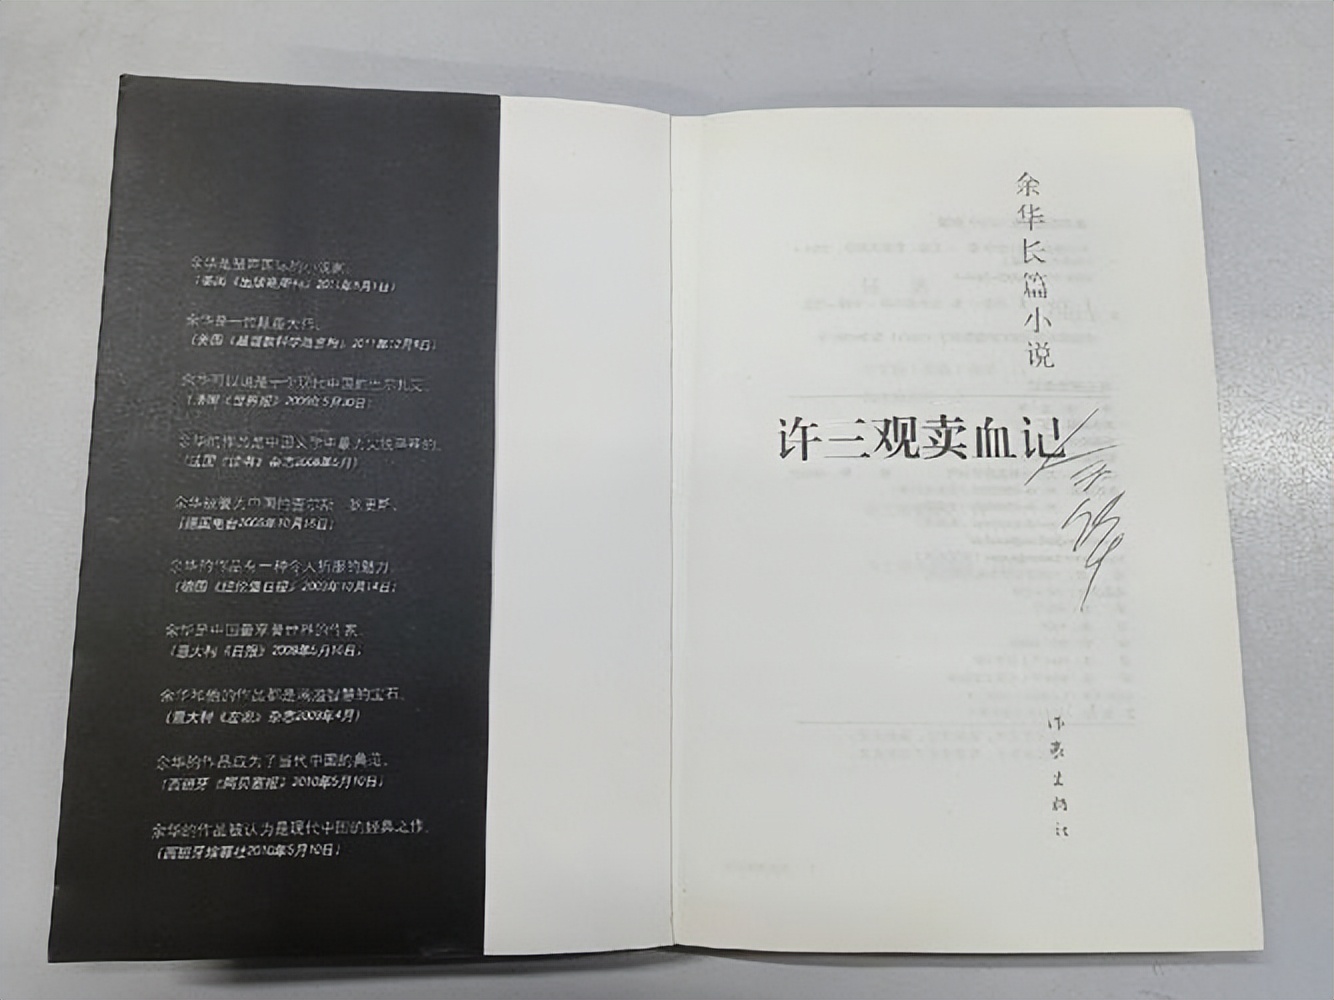 余华是蜚声国际的小说家。
（美国《出版商周刊》2011年8月1日）
余华是一位幽默大师。
（美国《基督教科学箴言报》2011年12月8日）
余华可以说是一个现代中国的巴尔扎克。
（法国《世界报》2008年5月30日）
余华的作品是中国文学中最
（法国《读书》杂志2008年5月）
余华被誉为中国的查尔斯·狄更斯。
（德国电台2009年10月15日）
余华的作品有一种令人折服的魅力。
（德国《日报》2009年10月14日）
余华是中国最享誉世界的作家。
（意大利《日报》2009年5月16日）
余华和他的作品都是满溢智慧的宝石。
（意大利《左派》杂志2009年4月）
余华的作品成为了当代中国的典范。
（西班牙《阿贝塞报》2010年5月10日）
余华的作品被认为是现代中国的经典之作。
（西班牙埃菲社2010年5月10日）
余华长篇小说
许三观卖血记
余华
作家出版社